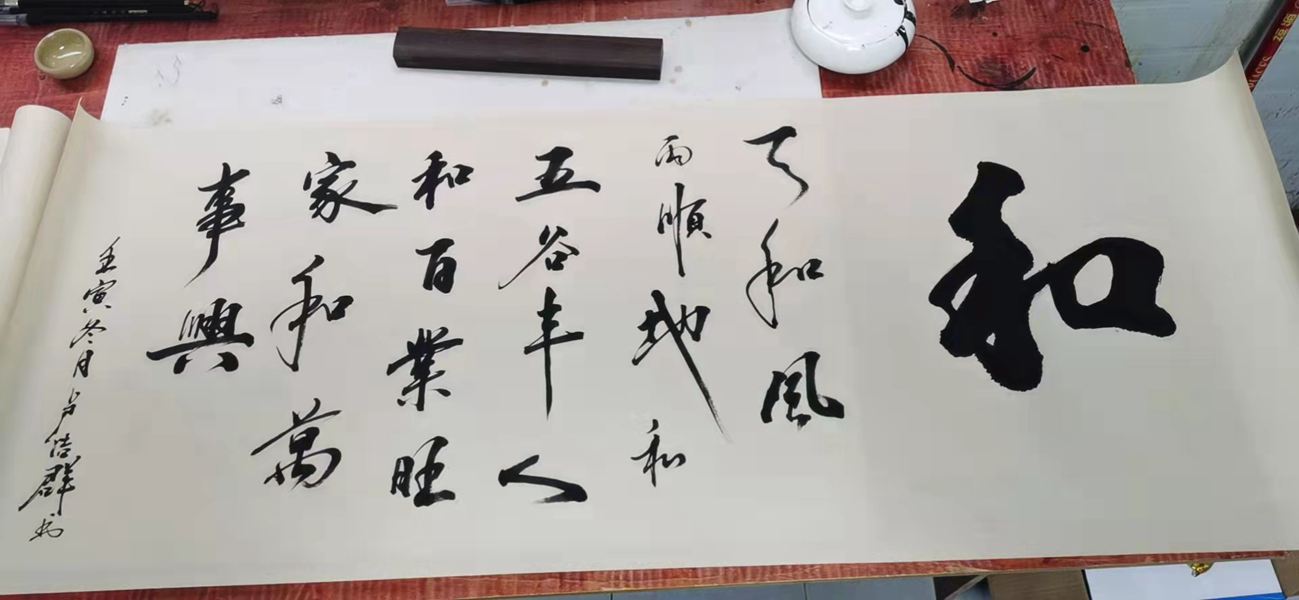 和
天和风
雨順地和
五谷丰人
和百業旺
家和萬
事興
壬寅冬月卢浩群书